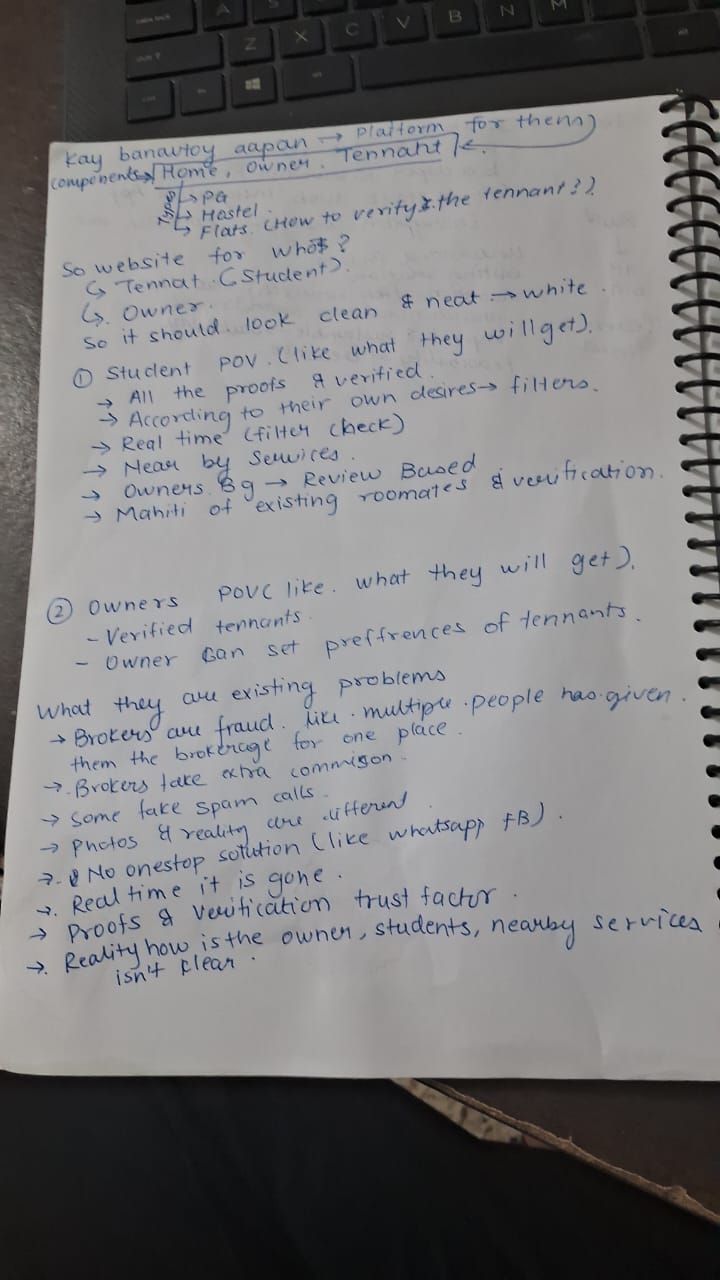 A S
Z X C V B N M
Kay banavtoy aapan → Platform for them
components → Home, Owner, Tennant
Types → PG
→ Hostel
→ Flats. (How to verify the tennant?)
So website for whom?
↳ Tennat (Student).
↳ Owner.
So it should look clean & neat → white.
① Student POV. (like what they will get).
→ All the proofs & verified.
→ According to their own desires → filters.
→ Real time (filter check)
→ Near by Services.
→ Owners Bg → Review Based
→ Mahiti of existing roomates & verification.
② Owners POV (like what they will get).
- Verified tennants.
- Owner can set preffrences of tennants.
What they are existing problems
→ Brokers are fraud. like multiple people has given
them the brokerage for one place.
→ Brokers take extra commison.
→ Some fake spam calls.
→ Photos & reality are different.
→ No onestop solution (like whatsapp FB).
→ Real time it is gone.
→ Proofs & verification trust factor.
→ Reality how is the owner, students, nearby services
isn't clear.